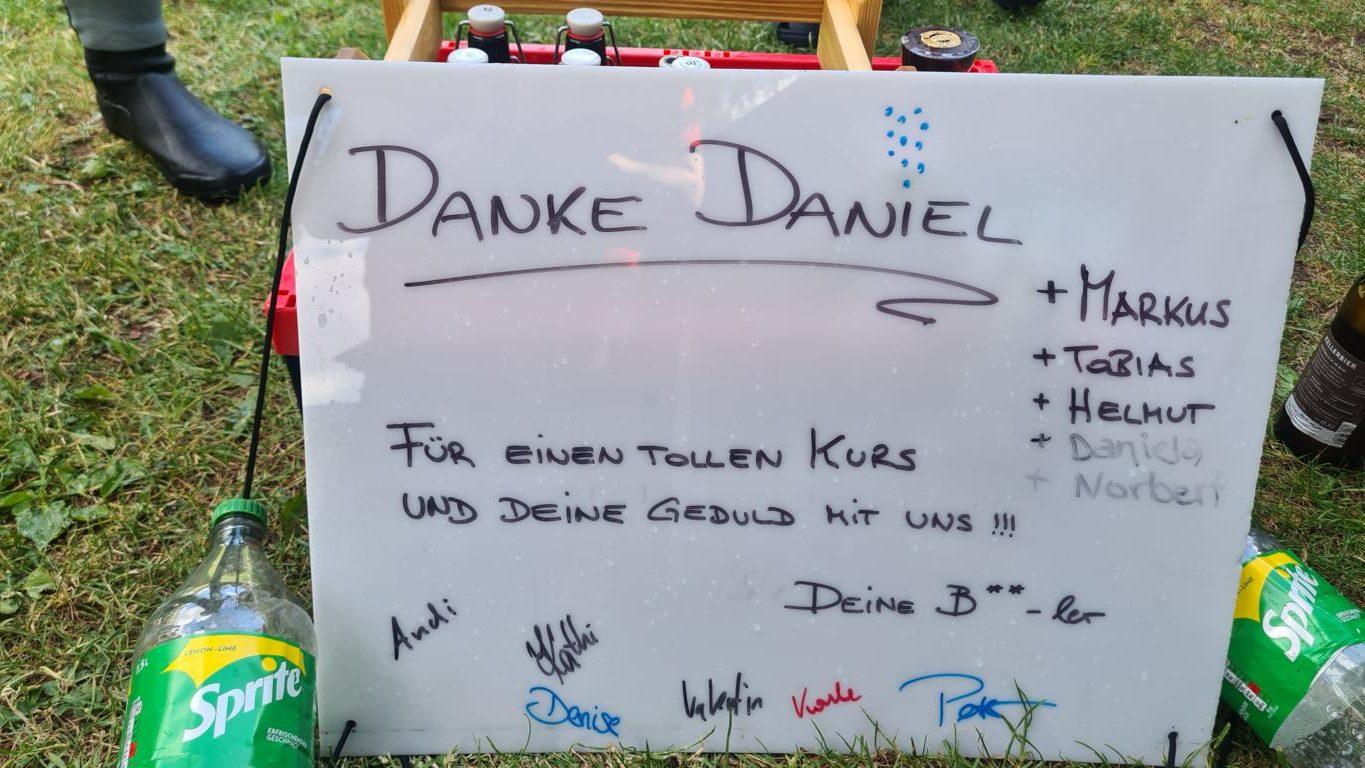 DANKE DANIEL
+ MARKUS
+ TOBIAS
+ HELMUT
+ Daniela
+ Norbert
FÜR EINEN TOLLEN KURS
UND DEINE GEDULD MIT UNS !!!
DEINE B**-ler
Andi
Kathi
Denise
Valentin
Peter
LEMON-LIME
Sprite
ERFRISCHENDER
GESCHMACK
Sprite
KELLERBIER